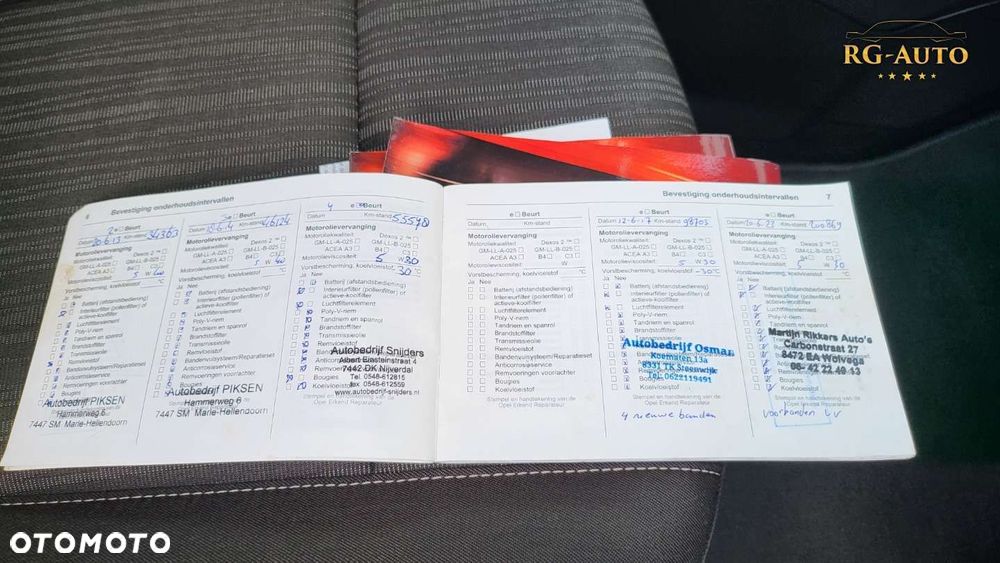 RG-AUTO
6 Bevestiging onderhoudsintervallen
2e Beurt
Datum 20.6.13 Km-stand 34363
Motorolievervanging
Motoroliekwaliteit Dexos 2 ™
GM-LL-A-025 GM-LL-B-025
ACEA A3 B4 C3
Motorolieviscositeit 5 W 40
Vorstbescherming, koelvloeistof °C
Ja Nee
Batterij (afstandsbediening)
Interieurfilter (pollenfilter) of
actieve-koolfilter
Luchtfilterelement
Poly-V-riem
Tandriem en spanrol
Brandstoffilter
Transmissieolie
Remvloeistof
Bandenvulsysteem/Reparatieset
Anticorrosieservice
Remvoeringen voorrachter
Bougies
Autobedrijf PIKSEN
Hammerweg 6
7447 SM Marie-Hellendoorn
3e Beurt
Datum Km-stand 46124
Motorolievervanging
Motoroliekwaliteit Dexos 2 ™
GM-LL-A-025 GM-LL-B-025
ACEA A3 B4 C3
Motorolieviscositeit 5 W 40
Vorstbescherming, koelvloeistof °C
Ja Nee
Batterij (afstandsbediening)
Interieurfilter (pollenfilter) of
actieve-koolfilter
Luchtfilterelement
Poly-V-riem
Tandriem en spanrol
Brandstoffilter
Transmissieolie
Remvloeistof
Bandenvulsysteem/Reparatieset
Anticorrosieservice
Remvoeringen voorrachter
Autobedrijf PIKSEN
Hammerweg 6
7447 SM Marie-Hellendoorn
4 e Beurt
Datum Km-stand 55578
Motorolievervanging
Motoroliekwaliteit Dexos 2 ™
GM-LL-A-025 GM-LL-B-025
ACEA A3 B4 C3
Motorolieviscositeit 5 W 30
Vorstbescherming, koelvloeistof
Ja Nee 30 °C
Batterij (afstandsbediening)
Interieurfilter (pollenfilter) of
actieve-koolfilter
Luchtfilterelement
Poly-V-riem
Tandriem en spanrol
Brandstoffilter
Transmissieolie
Remvloeistof
Autobedrijf Snijders
Albert Einsteinstraat 4
7442 DK Nijverdal
Tel. 0548-612815
fax 0548-612559
www.autobedrijf-snijders.nl
Koelvloeistof
Bevestiging onderhoudsintervallen 7
e Beurt
Datum Km-stand
Motorolievervanging
Motoroliekwaliteit Dexos 2 ™
GM-LL-A-025 GM-LL-B-025
ACEA A3 B4 C3
Motorolieviscositeit W
Vorstbescherming, koelvloeistof °C
Ja Nee
Batterij (afstandsbediening)
Interieurfilter (pollenfilter) of
actieve-koolfilter
Luchtfilterelement
Poly-V-riem
Tandriem en spanrol
Brandstoffilter
Transmissieolie
Remvloeistof
Bandenvulsysteem/Reparatieset
Anticorrosieservice
Remvoeringen voorrachter
Bougies
Koelvloeistof
Stempel en handtekening van de
Opel Erkend Reparateur
e Beurt
Datum 12-6-17 Km-stand 93705
Motorolievervanging
Motoroliekwaliteit Dexos 2 ™
GM-LL-A-025 GM-LL-B-025
ACEA A3 B4 C3
Motorolieviscositeit 5 W 30
Vorstbescherming, koelvloeistof -30 °C
Ja Nee
Batterij (afstandsbediening)
Interieurfilter (pollenfilter) of
actieve-koolfilter
Luchtfilterelement
Poly-V-riem
Tandriem en spanrol
Brandstoffilter
Autobedrijf Osmar
Koematen 13a
8331 TK Steenwijk
Tel. 0622119491
Bougies
Koelvloeistof
Stempel en handtekening van de
Opel Erkend Reparateur
4 nieuwe banden
e Beurt
Datum Km-stand
Motorolievervanging
Motoroliekwaliteit Dexos 2 ™
GM-LL-A-025 GM-LL-B-025
ACEA A3 B4 C3
Motorolieviscositeit 5 W 30
Vorstbescherming, koelvloeistof °C
Ja Nee
Batterij (afstandsbediening)
Interieurfilter (pollenfilter) of
actieve-koolfilter
Luchtfilterelement
Poly-V-riem
Tandriem en spanrol
Martijn Rikkers Auto's
Carbonstraat 27
8472 EA Wolvega
06- 42 22 49 13
Bougies
Koelvloeistof
Stempel en handtekening van de
Opel Erkend Reparateur
OTOMOTO